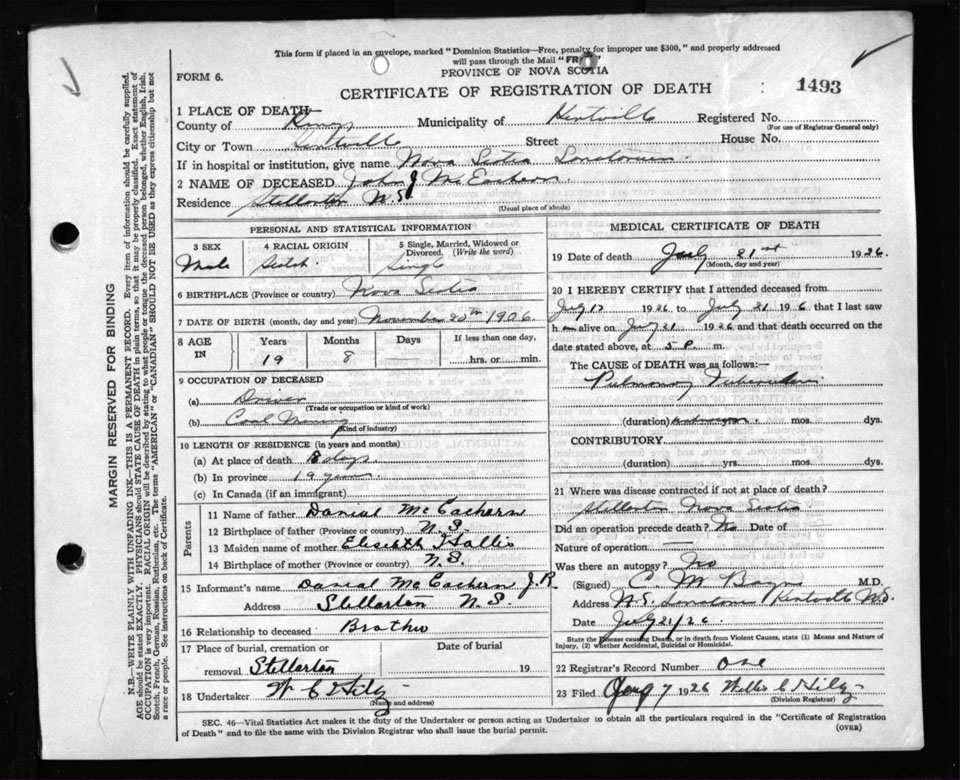 This form if placed in an envelope, marked "Dominion Statistics—Free, penalty for improper use $300," and properly addressed
will pass through the Mail "FREE."
FORM 6.
PROVINCE OF NOVA SCOTIA
CERTIFICATE OF REGISTRATION OF DEATH : 1493
1 PLACE OF DEATH
County of Kings Municipality of Kentville Registered No.
(For use of Registrar General only)
City or Town Kentville Street House No.
If in hospital or institution, give name Nova Scotia Sanatorium
2 NAME OF DECEASED John J McEachern
Residence Stellarton N.S.
(Usual place of abode)
PERSONAL AND STATISTICAL INFORMATION
3 SEX 4 RACIAL ORIGIN 5 Single, Married, Widowed or Divorced. (Write the word)
Male Scotch Single
6 BIRTHPLACE (Province or country) Nova Scotia
7 DATE OF BIRTH (month, day and year) November 20th 1906.
8 AGE IN Years Months Days If less than one day,
19 8 hrs. or min.
9 OCCUPATION OF DECEASED
(a) Driver
(Trade or occupation or kind of work)
(b) Coal Mining
(Kind of industry)
10 LENGTH OF RESIDENCE (in years and months)
(a) At place of death 8 days
(b) In province 19 years
(c) In Canada (if an immigrant)
Parents
11 Name of father Danial McEachern
12 Birthplace of father (Province or country) N.S.
13 Maiden name of mother
14 Birthplace of mother (Province or country) N.S.
15 Informant's name Danial McEachern J.R
Address Stellarton N.S.
16 Relationship to deceased Brother
17 Place of burial, cremation or removal Stellarton Date of burial 19
18 Undertaker W C Hilz
(Name and address)
MEDICAL CERTIFICATE OF DEATH
19 Date of death July 21st 1926.
(Month, day and year)
20 I HEREBY CERTIFY that I attended deceased from
July 1926 to July 21 1926 that I last saw
h im alive on July 21 1926 and that death occurred on the
date stated above, at 5 P. m.
The CAUSE of DEATH was as follows:—
Pulmonary Tuberculosis
(duration) yrs. mos. dys.
CONTRIBUTORY
(duration) yrs. mos. dys.
21 Where was disease contracted if not at place of death?
Stellarton Nova Scotia
Did an operation precede death? No Date of
Nature of operation —
Was there an autopsy? No
(Signed) C M M.D.
Address N.S. Kentville N.S.
Date July 21/26
State the Disease causing Death, or in death from Violent Causes, state (1) Means and Nature of Injury, (2) whether Accidental, Suicidal or Homicidal.
22 Registrar's Record Number one
23 Filed Aug 7 1926 Willis C Hilz
(Division Registrar)
SEC. 46—Vital Statistics Act makes it the duty of the Undertaker or person acting as Undertaker to obtain all the particulars required in the "Certificate of Registration
of Death" and to file the same with the Division Registrar who shall issue the burial permit. (OVER)
MARGIN RESERVED FOR BINDING
N.B.—WRITE PLAINLY WITH UNFADING INK—THIS IS A PERMANENT RECORD. Every item of information should be carefully supplied.
AGE should be stated EXACTLY. PHYSICIANS should STATE CAUSE OF DEATH in plain terms, so that it may be properly classified. Exact statement of
OCCUPATION is very important. RACIAL ORIGIN will be described by stating to what people or tongue the deceased person belonged, whether English, Irish,
Scotch, French, German, Russian, Ruthenian, etc. The terms "AMERICAN" or "CANADIAN" SHOULD NOT BE USED as they express citizenship but not
a race or people. See instructions on back of Certificate.